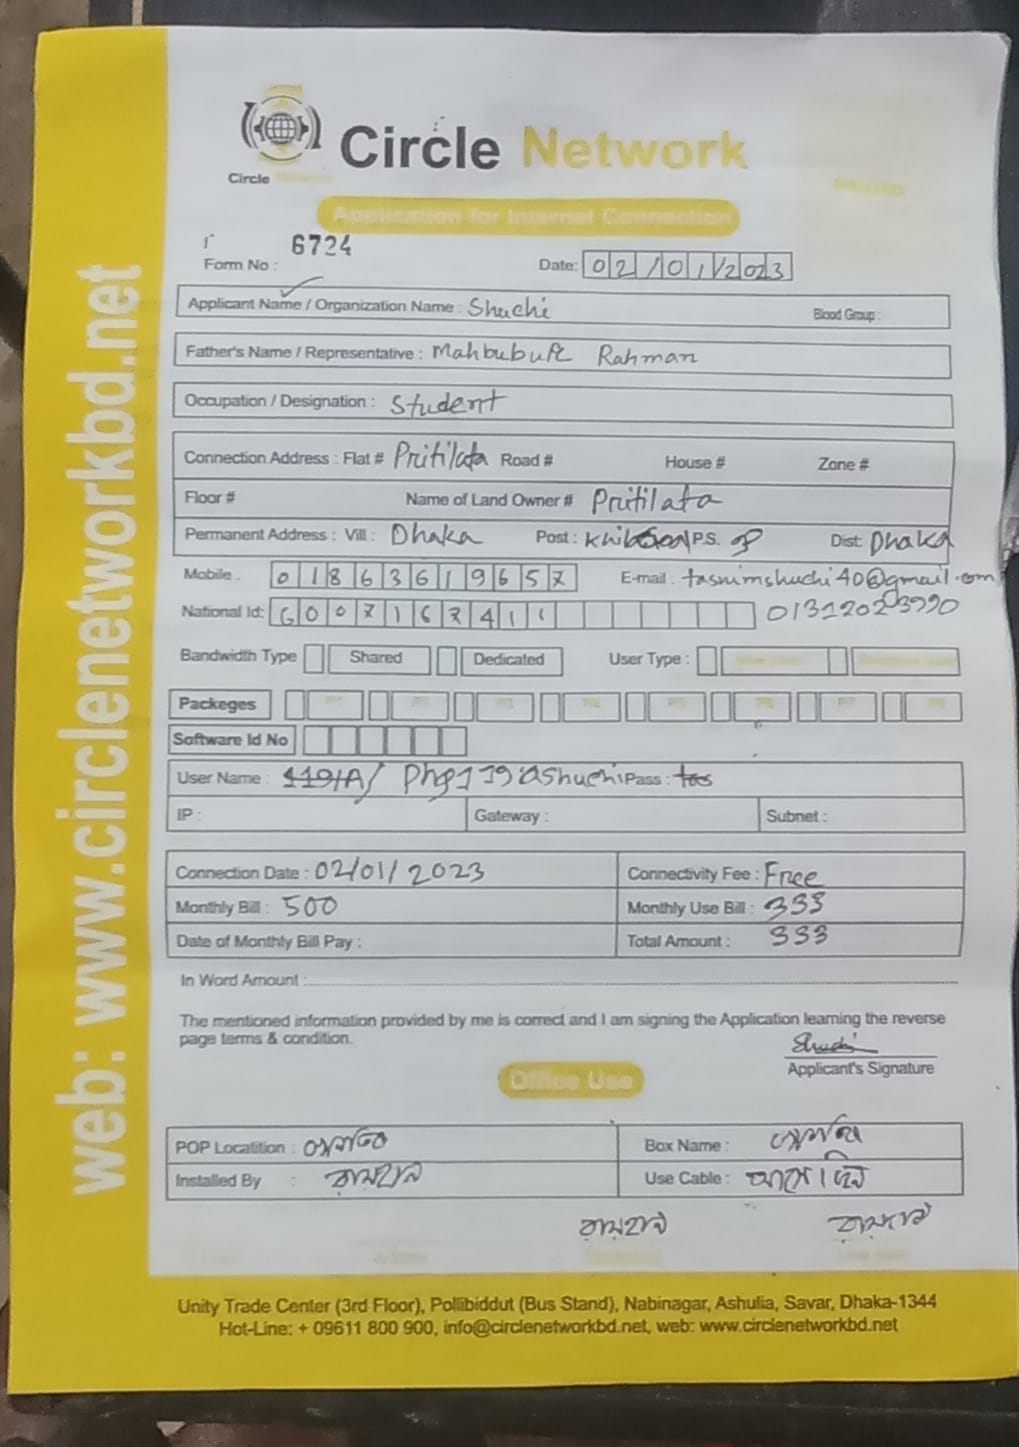 Circle Network
Circle
Photo
Application for Internet Connection
6724
Form No :
Date: 02/01/2023
Applicant Name / Organization Name : Shuchi
Blood Group :
Father's Name / Representative : Mahbubur Rahman
Occupation / Designation : Student
Connection Address : Flat # Pritilata Road # House # Zone #
Floor # Name of Land Owner # Pritilata
Permanent Address : Vill : Dhaka Post : P.S. Dist: Dhaka
Mobile . 01863619657 E-mail : tasnimshuchi40@gmail.com
National Id:
Bandwidth Type Shared Dedicated User Type :
Packeges
Software Id No
User Name : Pass :
IP : Gateway : Subnet :
Connection Date : 02/01/2023 Connectivity Fee : Free
Monthly Bill : 500 Monthly Use Bill : 333
Date of Monthly Bill Pay : Total Amount : 333
In Word Amount :
The mentioned information provided by me is correct and I am signing the Application learning the reverse
page terms & condition.
Shuchi
Applicant's Signature
Office Use
POP Localition : Box Name :
Installed By : Use Cable :
Unity Trade Center (3rd Floor), Pollibiddut (Bus Stand), Nabinagar, Ashulia, Savar, Dhaka-1344
Hot-Line: + 09611 800 900, info@circlenetworkbd.net, web: www.circlenetworkbd.net
web: www.circlenetworkbd.net